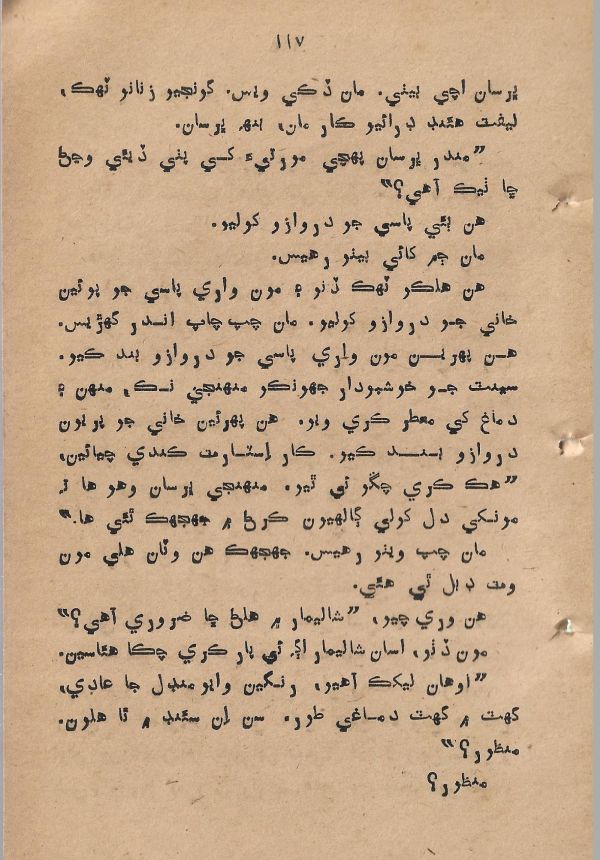 ١١٧
ڀرسان اچي بيٺي. مان ڏڪي ويس. گونجيو زنانو ٽھڪ،
ليفٽ هئنڊ ڊرائيو ڪار مان، بنھ ڀرسان.
”مندر ڀرسان پهچي مورتيءَ کي پٺي ڏيئي وڃڻ
ڇا ٺيڪ آهي؟“
هن ٻئي پاسي جو دروازو کوليو.
مان ڄم کائي بيٺو رهيس.
هن هلڪو ٽھڪ ڏنو ۽ مون واري پاسي جو پوئين
خاني جو دروازو کوليو. مان چپ چاپ اندر گهڙيس.
هن پهرين مون واري پاسي جو دروازو بند ڪيو.
سينٽ جو خوشبودار جهونڪو منهنجي نڪ، منهن ۽
دماغ کي معطر ڪري ويو. هن پهرئين خاني جو پريون
دروازو بند ڪيو. ڪار اسٽارٽ ڪندي چيائين،
”هڪ ڪري چڱو ئي ٿيو. منهنجي ڀرسان وهو ها ته
مونکي دل کولي ڳالهيون ڪرڻ ۾ جهجهڪ ٿئي ها.“
مان چپ ويٺو رهيس. جهجهڪ هن وٽان هلي مون
وٽ ڊبل ٿي هئي.
هن وري چيو، ”شاليمار ۾ هلڻ ڇا ضروري آهي؟“
مون ڏٺو، اسان شاليمار اڳ ئي پار ڪري چڪا هئاسين.
”اوهان ليکڪ آهيو، رنگين وايو منڊل جا عادي،
گهٽ ۾ گهٽ دماغي طور. سن اِن سئنڊ ۾ ٿا هلون.
منظور؟“
منظور؟